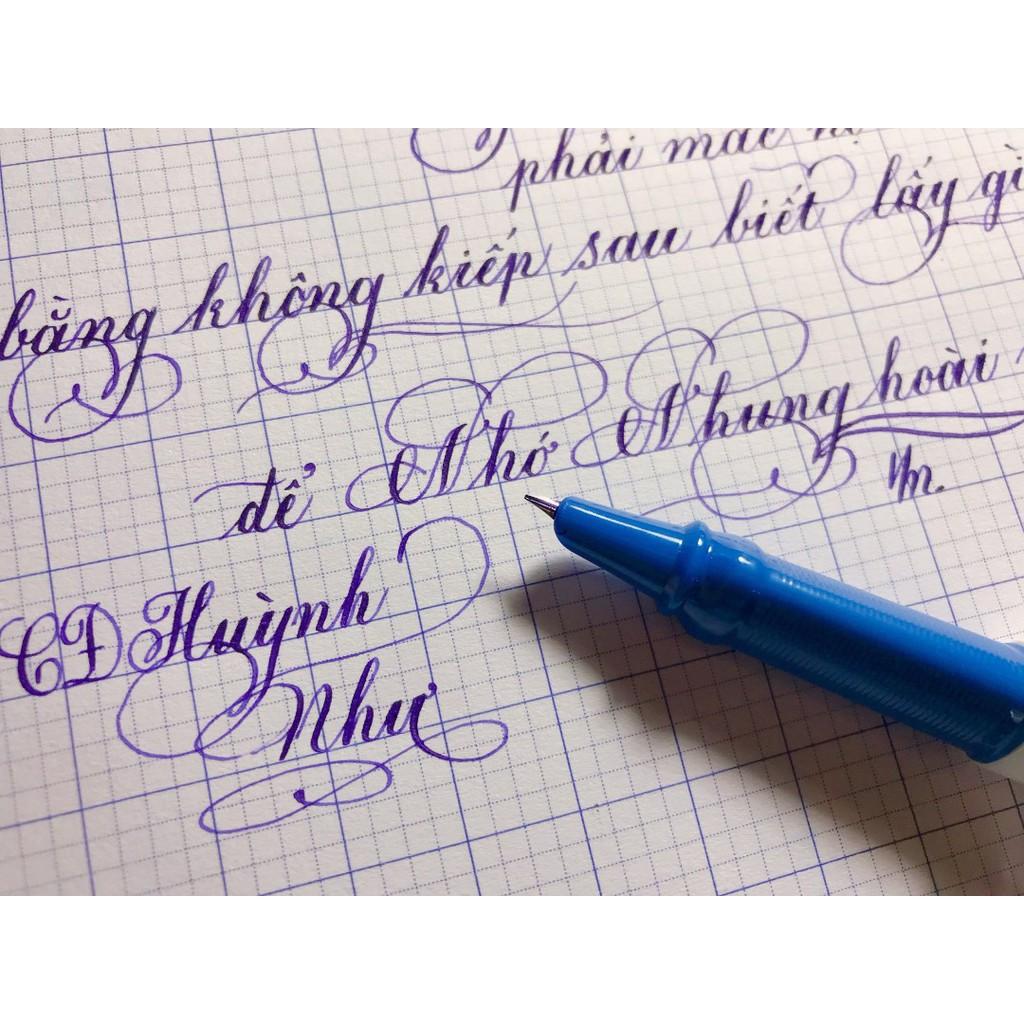 phải mắc nợ
bằng không kiếp sau biết lấy gì
để Nhớ Nhung hoài
CĐ Huỳnh
Như